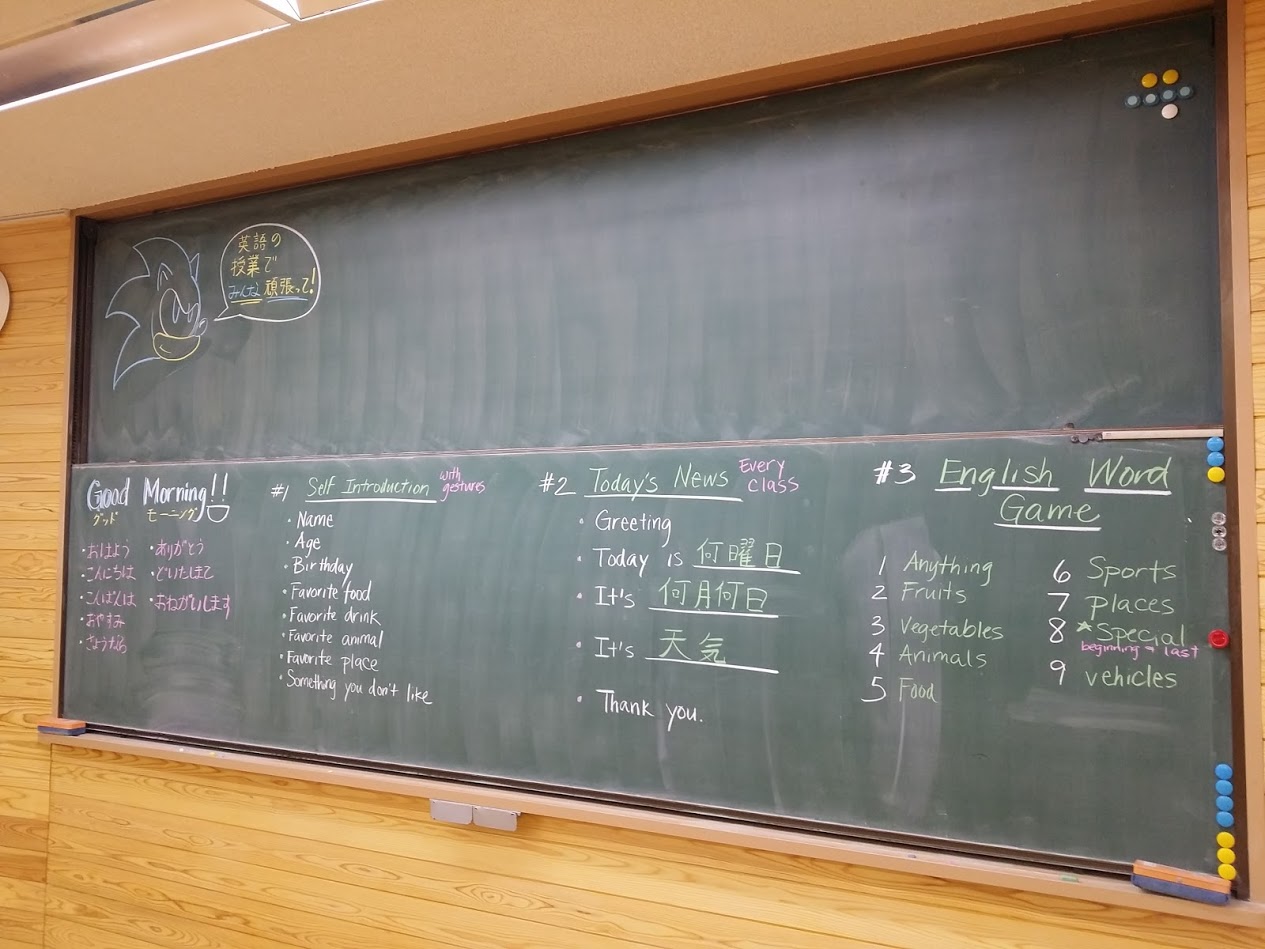 英語の
授業で
みんな頑張って!
Good Morning!!
グッド モーニング
・おはよう
・こんにちは
・こんばんは
・おやすみ
・さようなら
・ありがとう
・どいたしまて
・おねがいします
#1 Self Introduction with gestures
・Name
・Age
・Birthday
・Favorite food
・Favorite drink
・Favorite animal
・Favorite place
・Something you don't like
#2 Today's News Every class
・Greeting
・Today is 何曜日
・It's 何月何日
・It's 天気
・Thank you.
#3 English Word
Game
1 Anything
2 Fruits
3 Vegetables
4 Animals
5 Food
6 Sports
7 places
8 *Special
beginning + last
9 vehicles